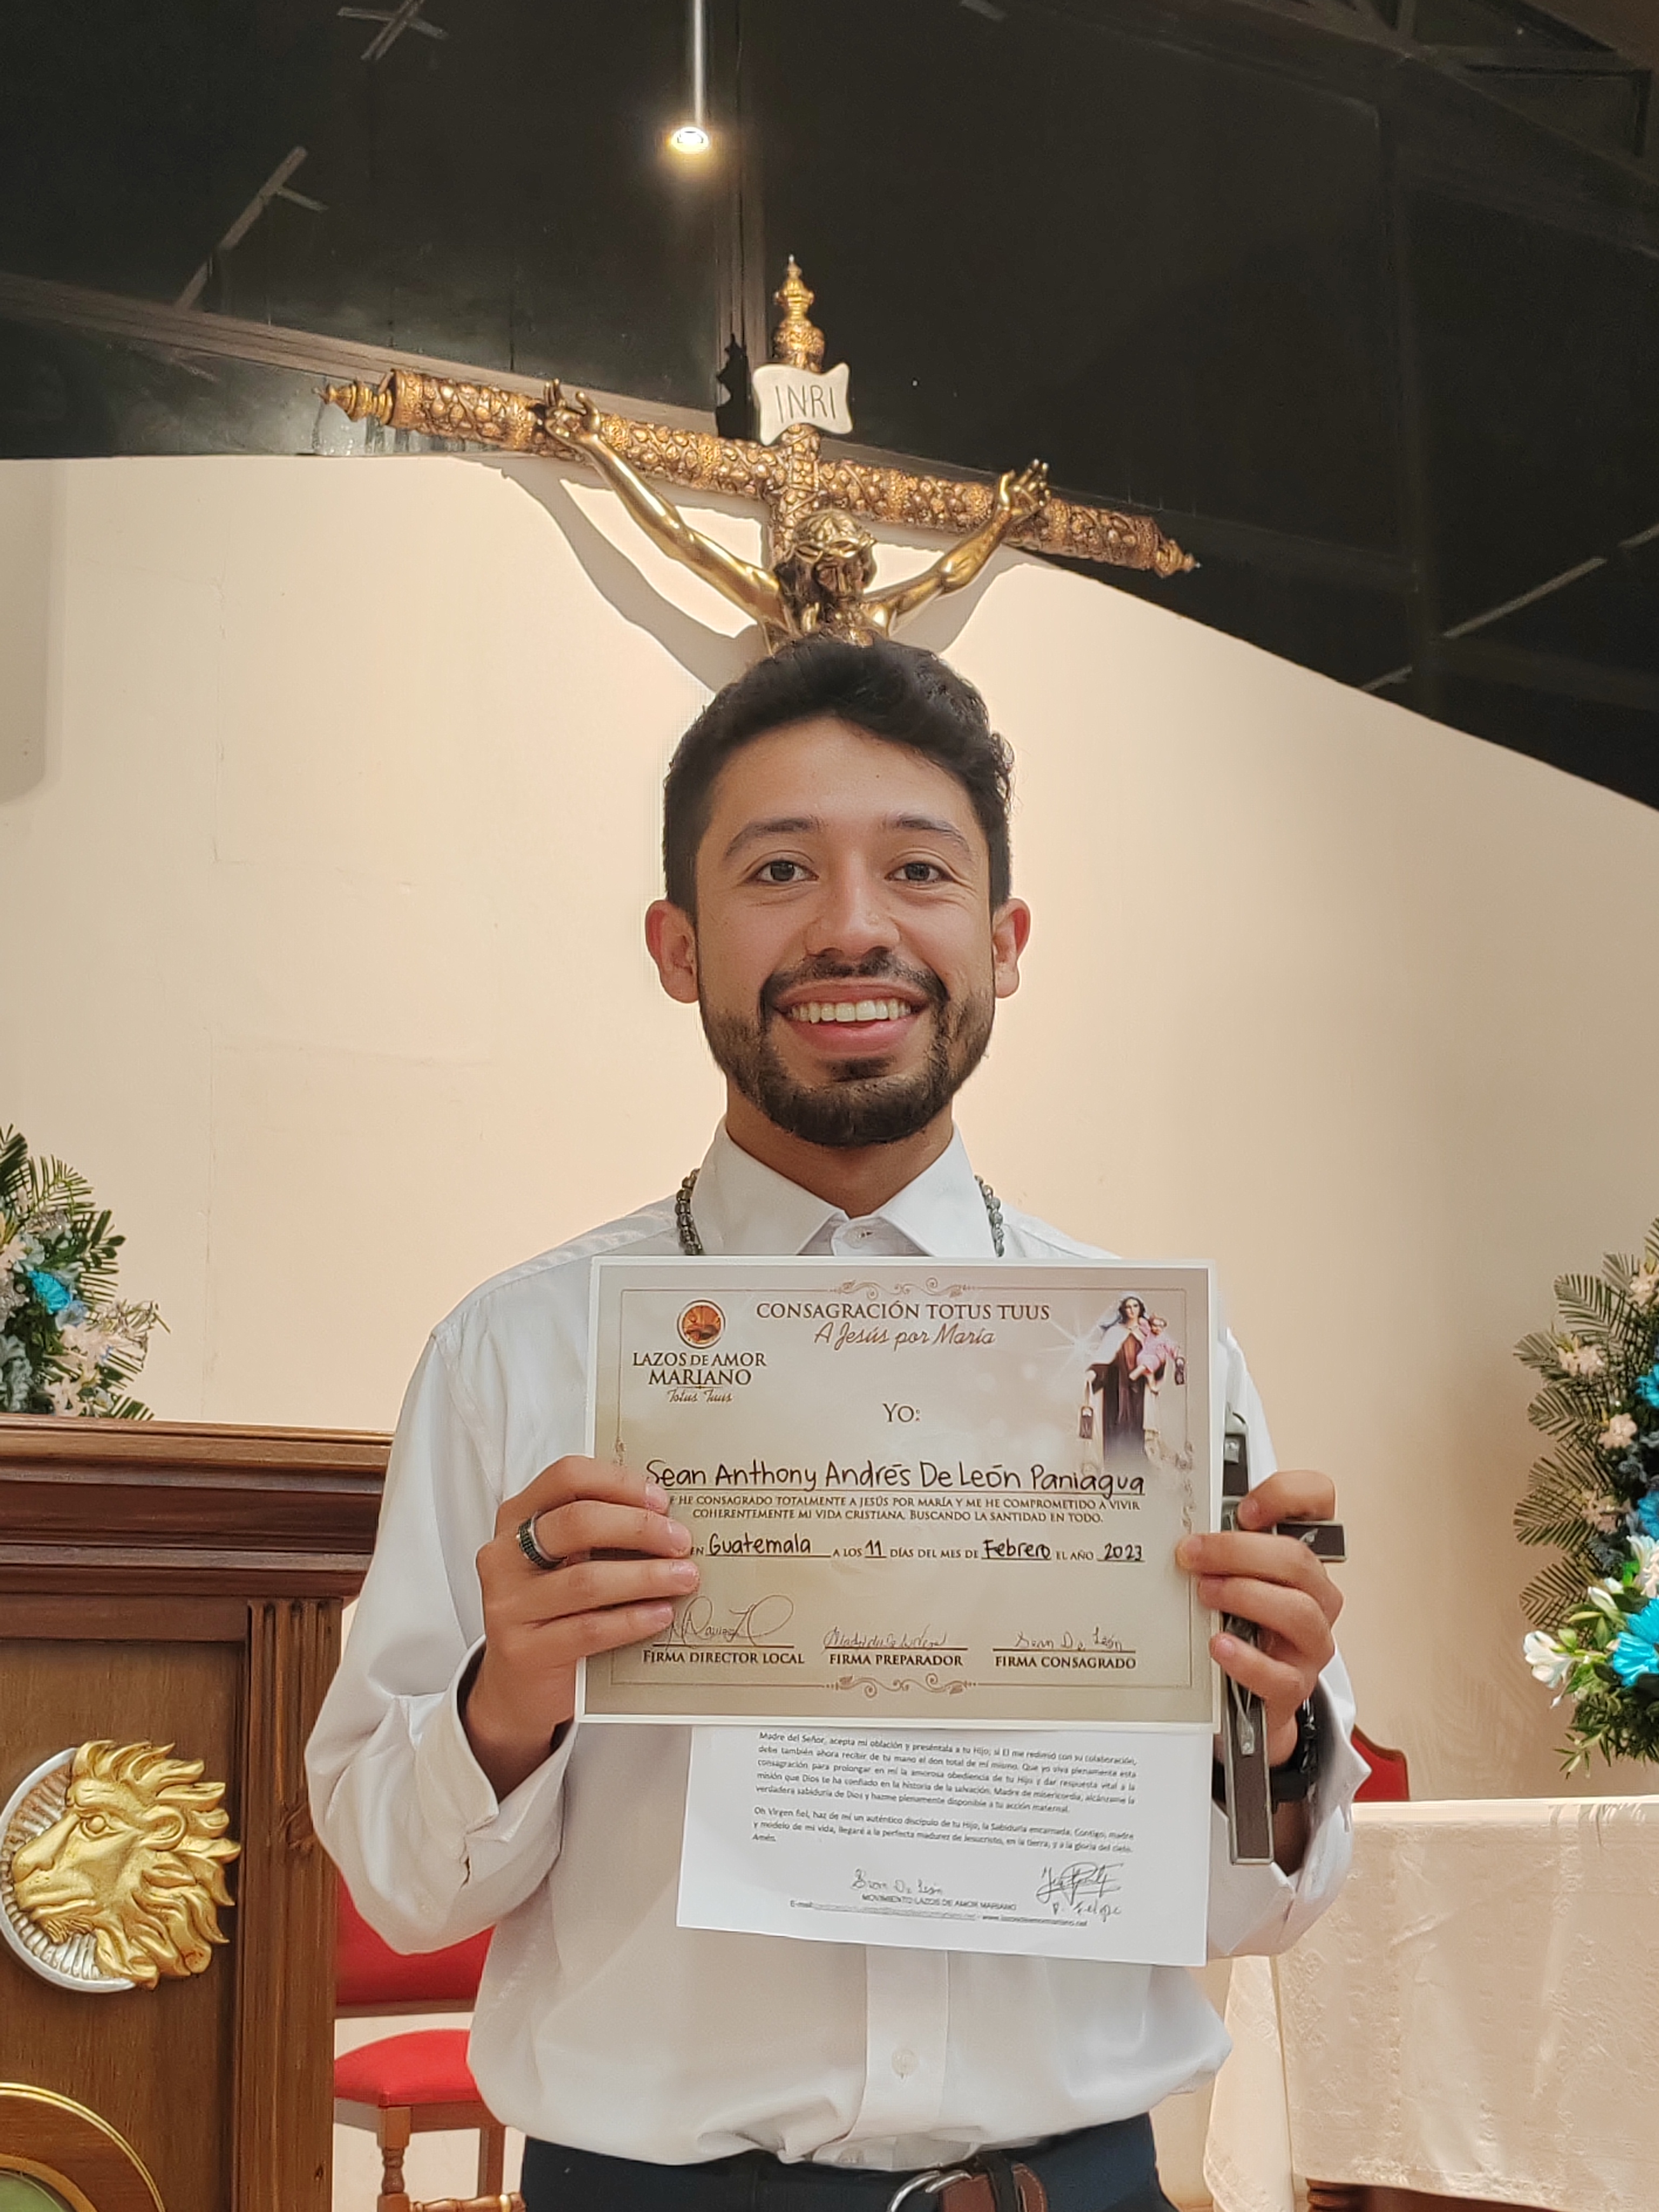 INRI
CONSAGRACIÓN TOTUS TUUS
A Jesús por María
LAZOS DE AMOR
MARIANO
Totus Tuus
YO:
Sean Anthony Andrés De León Paniagua
HE CONSAGRADO TOTALMENTE A JESÚS POR MARÍA Y ME HE COMPROMETIDO A VIVIR
COHERENTEMENTE MI VIDA CRISTIANA, BUSCANDO LA SANTIDAD EN TODO.
EN Guatemala A LOS 11 DÍAS DEL MES DE Febrero EL AÑO 2023
Sean De León
FIRMA DIRECTOR LOCAL FIRMA PREPARADOR FIRMA CONSAGRADO
Madre del Señor, acepta mi oblación y preséntala a tu Hijo; si El me redimió con su colaboración,
debe también ahora recibir de tu mano el don total de mí mismo. Que yo viva plenamente esta
consagración para prolongar en mí la amorosa obediencia de tu Hijo y dar respuesta vital a la
misión que Dios te ha confiado en la historia de la salvación. Madre de misericordia, alcánzame la
verdadera sabiduría de Dios y hazme plenamente disponible a tu acción maternal.
Oh Virgen fiel, haz de mí un auténtico discípulo de tu Hijo, la Sabiduría encarnada. Contigo, madre
y modelo de mi vida, llegaré a la perfecta madurez de Jesucristo, en la tierra, y a la gloria del cielo.
Amén.
Sean De León
P. Felipe
MOVIMIENTO LAZOS DE AMOR MARIANO
E-mail: - www.lazosdeamormariano.net